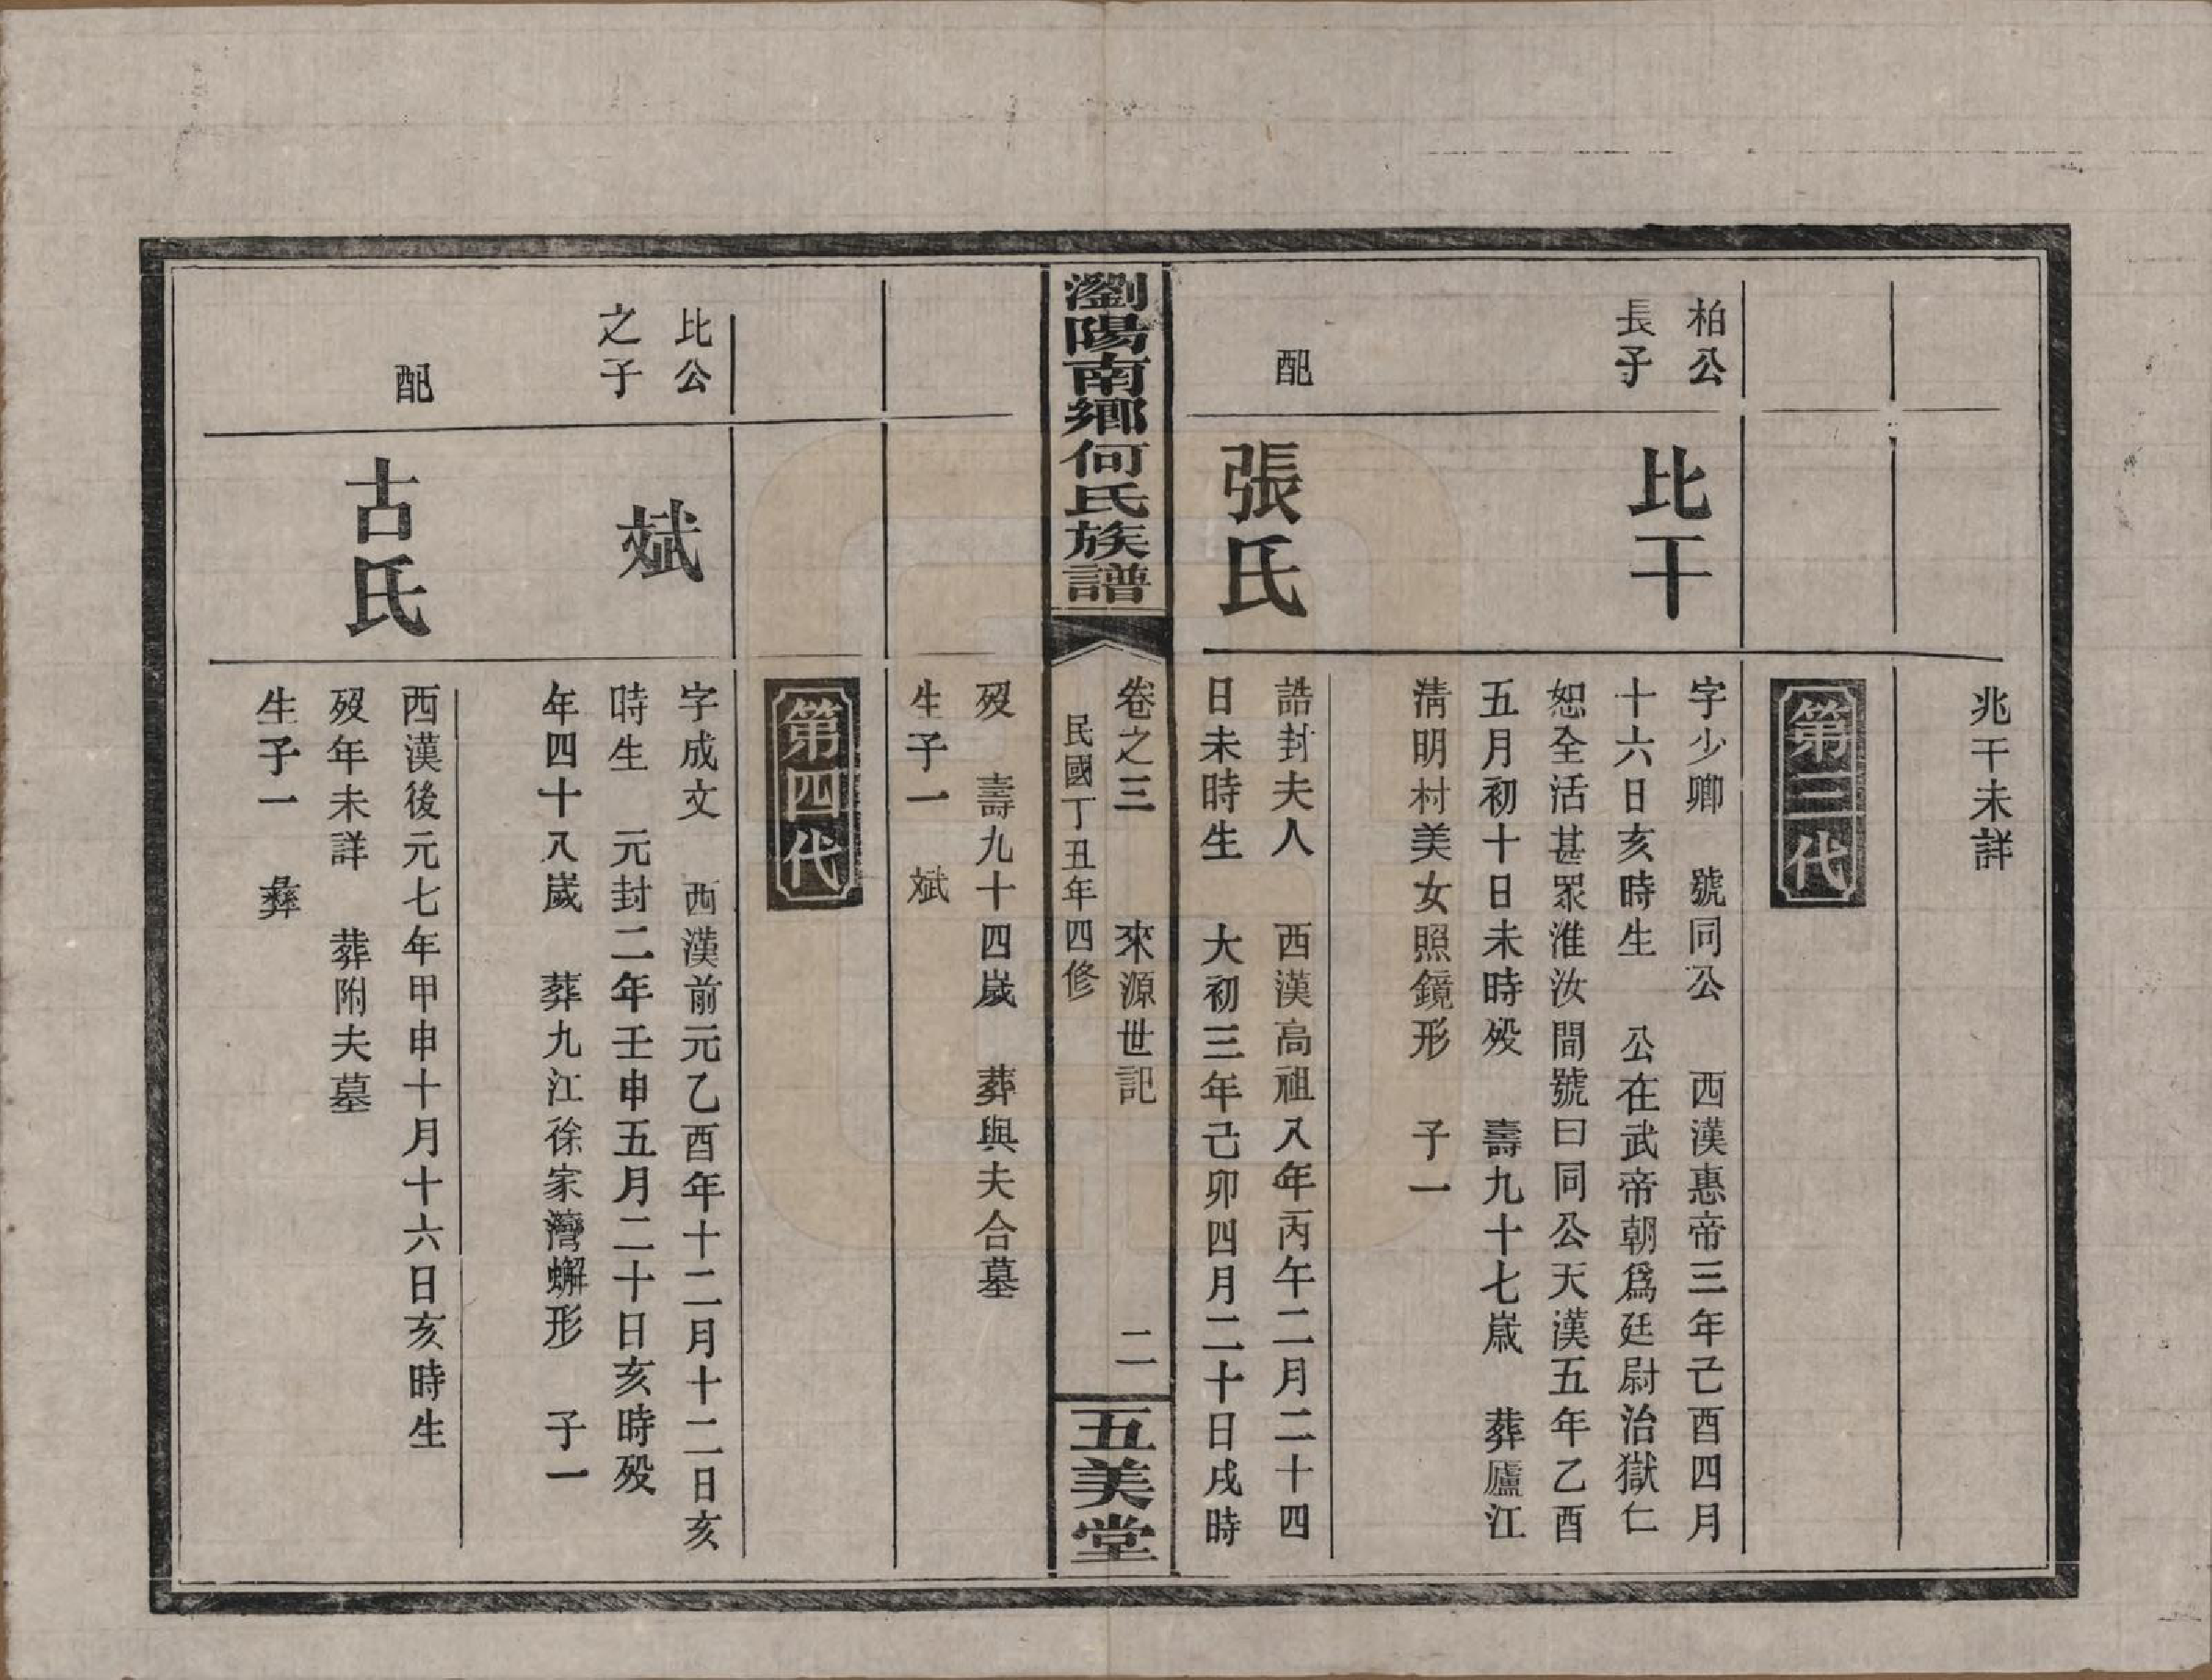 兆干未詳
第三代
柏公
長子
比干
字少卿　號同公　西漢惠帝三年己酉四月
十六日亥時生　公在武帝朝爲廷尉治獄仁
恕全活甚眾淮汝間號曰同公天漢五年乙酉
五月初十日未時歿　壽九十七歲　葬廬江
淸明村美女照鏡形　子一
配
張氏
誥封夫人　西漢高祖八年丙午二月二十四
日未時生　大初三年己卯四月二十日戌時
瀏陽南鄉何氏族譜
卷之三　來源世記　二
民國丁丑年四修
五美堂
歿　壽九十四歲　葬與夫合墓
生子一　斌
第四代
比公
之子
斌
字成文　西漢前元乙酉年十二月十二日亥
時生　元封二年壬申五月二十日亥時歿
年四十八歲　葬九江徐家灣蠏形　子一
配
古氏
西漢後元七年甲申十月十六日亥時生
歿年未詳　葬附夫墓
生子一　彝